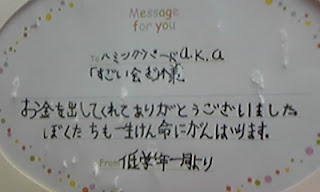 Message
for you
To ハミングバードa.k.a
「すごい会お様」
お金を出してくれてありがとうございました。
ぼくたちも一生けん命にがんばります。
From 低学年一同より